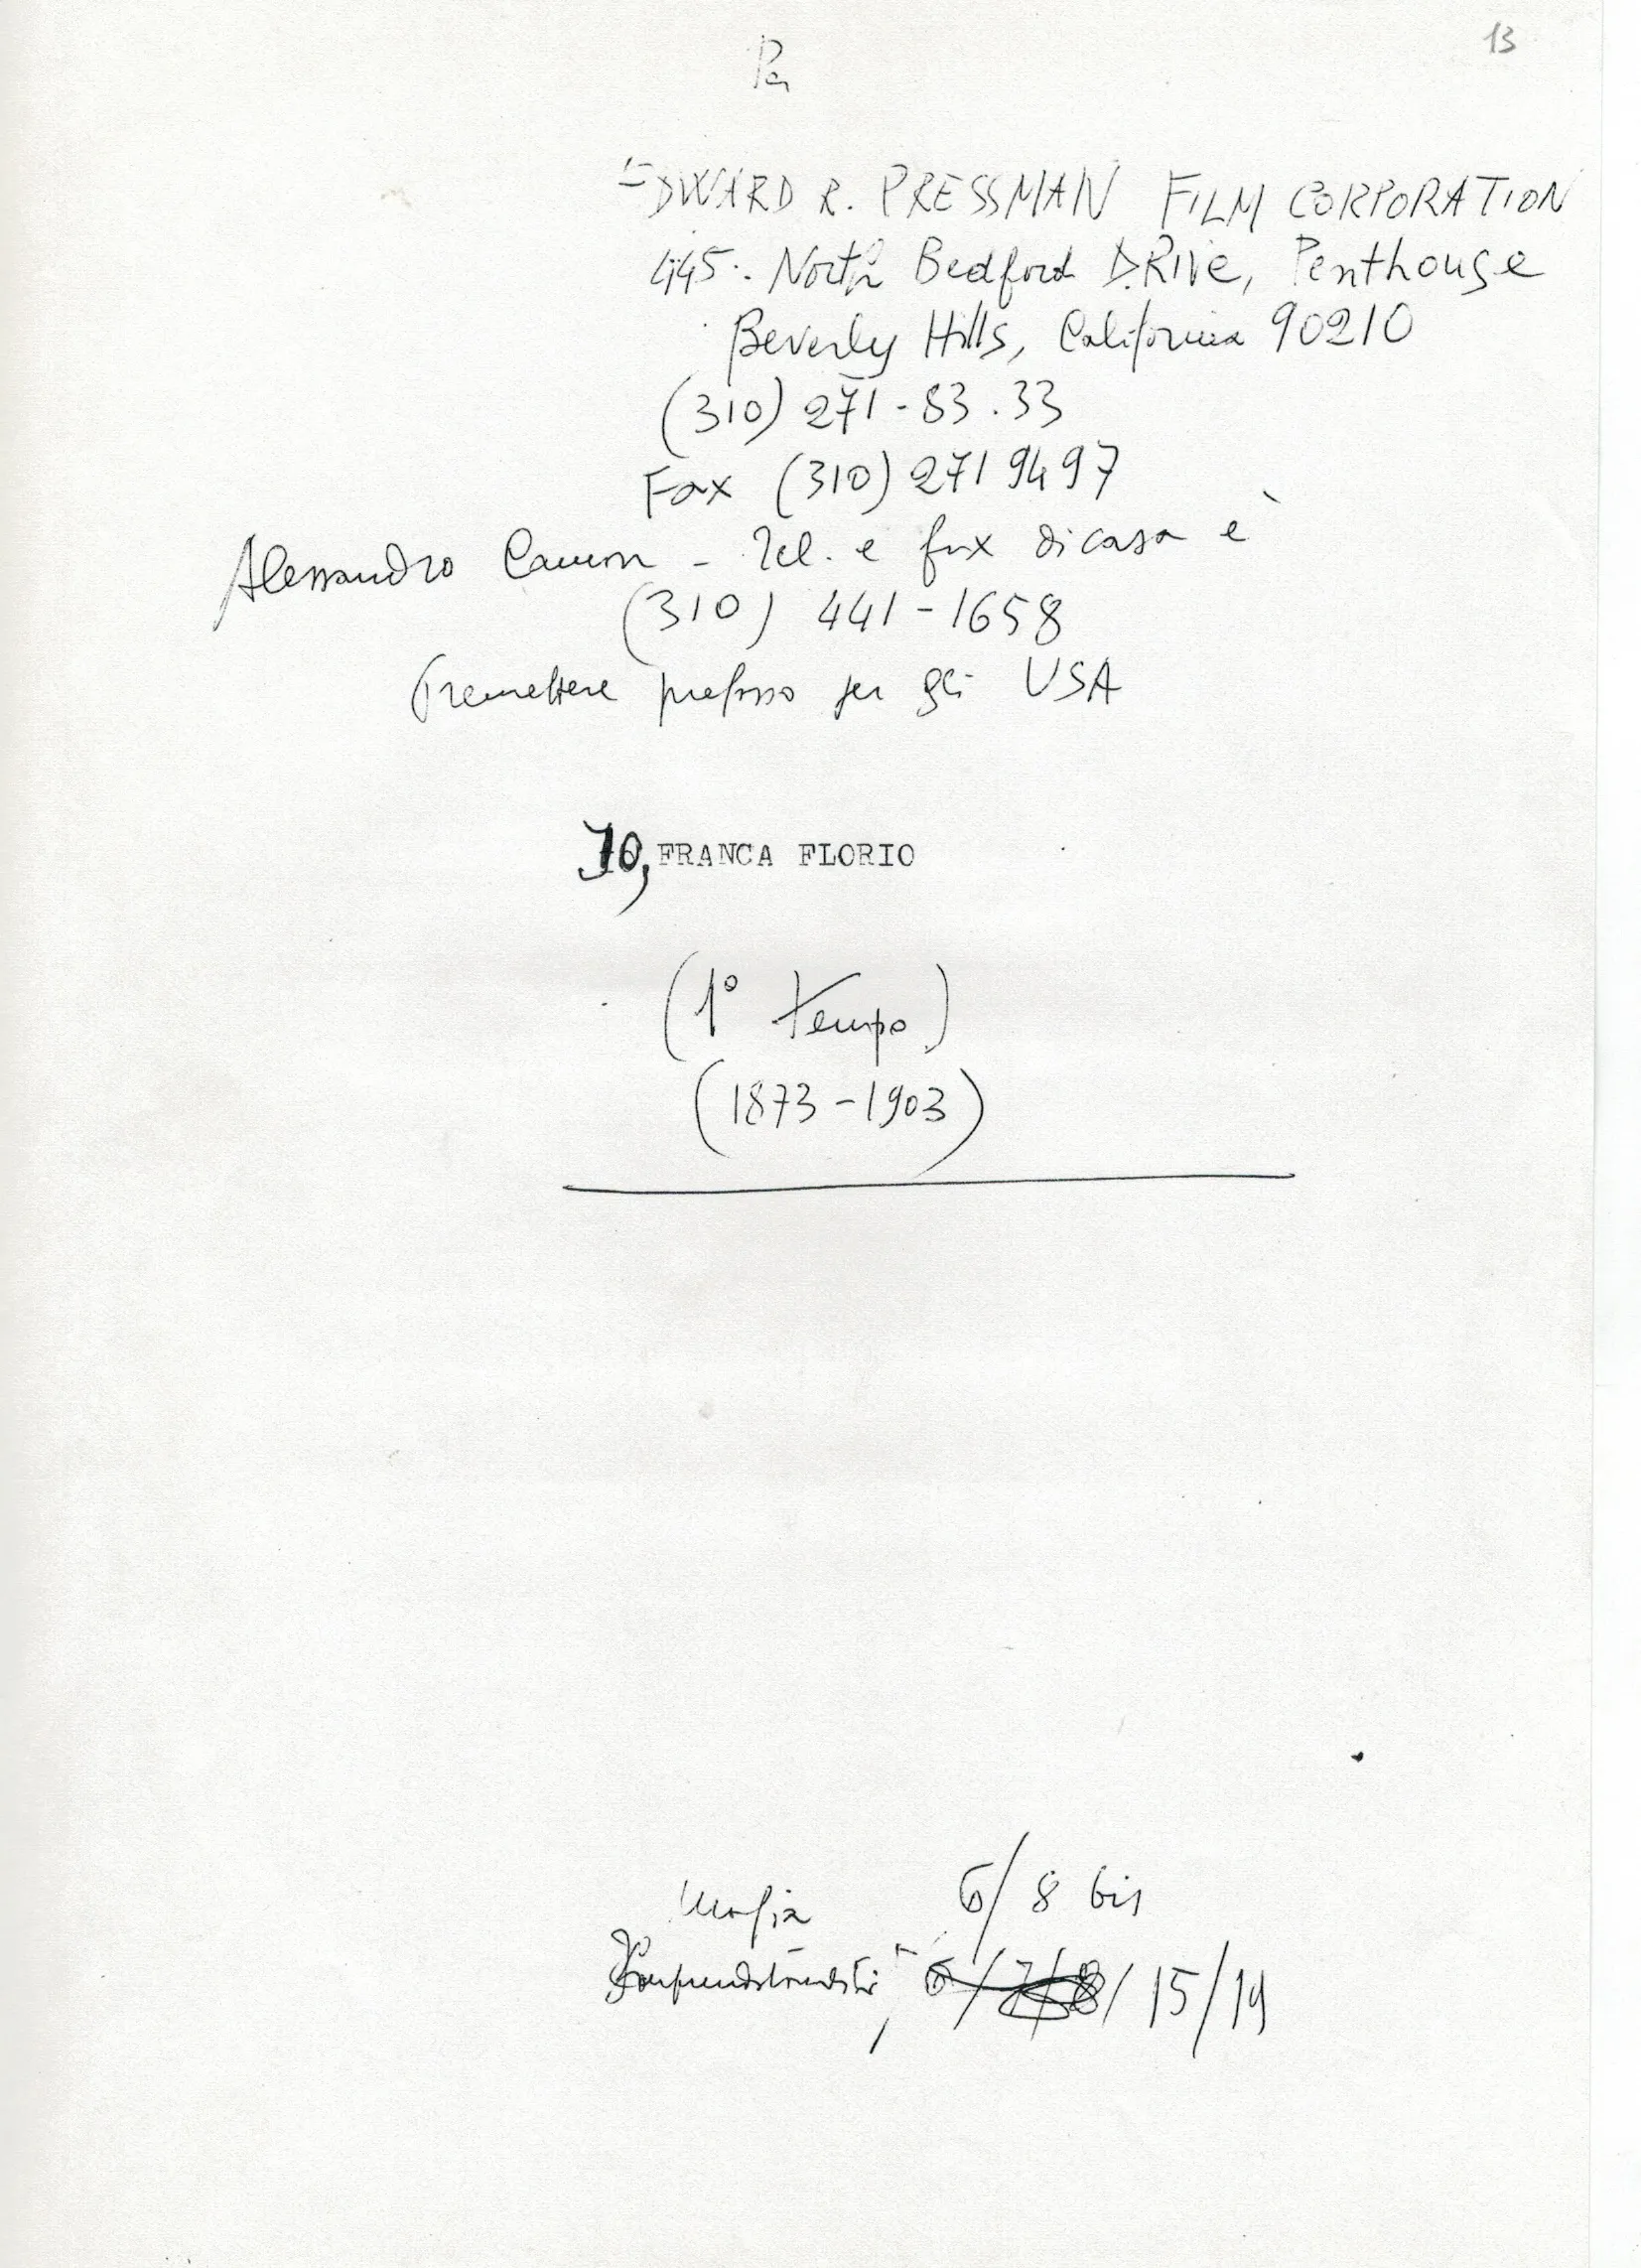 13
EDWARD R. PRESSMAN FILM CORPORATION
445. North Bedford DRIVE, Penthouse
Beverly Hills, California 90210
(310) 271-83.33
Fax (310) 271 9497
Alessandro Camon - Tel. e fax di casa è
(310) 441-1658
Premettere prefisso per gli USA
IO, FRANCA FLORIO
(1° Tempo)
(1873-1903)
Mafia 6/8 bis
/15/19